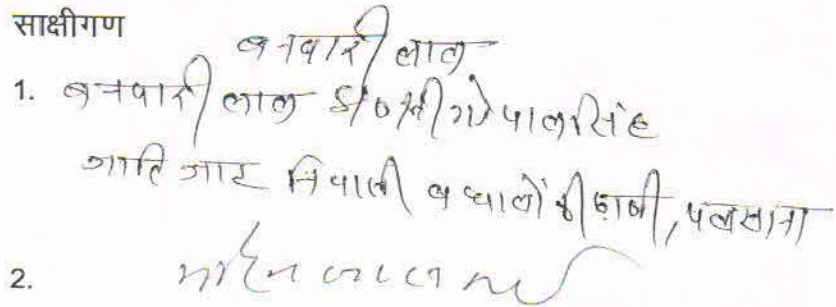 साक्षीगण
बनवारी लाल
1. बनवारी लाल S/o श्री गोपाल सिंह
जाति जाट निवासी बधालों की ढाणी, पलसाना
2. मोहन लाल